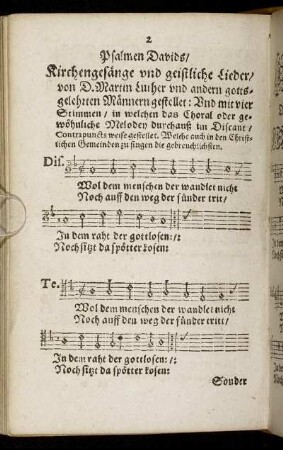 2
Psalmen Davids/
Kirchengesänge vnd geistliche Lieder/
von D. Martin Luther vnd andern gotts-
gelehrten Männern gestellet: Vnd mit vier
Stimmen / in welchen das Choral oder ge-
wöhnliche Melodey durchauß im Discant /
Contrapuncts weise gestellet. Welche auch in den Christ-
lichen Gemeinden zu singen die gebreuchlichsten.
Dis.
Wol dem menschen der wandlet nicht
Noch auff den weg der sünder tritt/
In dem raht der gottlosen:/:
Noch sitzt da spötter losen:
Te.
Wol dem menschen der wandlet nicht
Noch auff den weg der sünder tritt/
In dem raht der gottlosen:/:
Noch sitzt da spötter losen:
Sonder